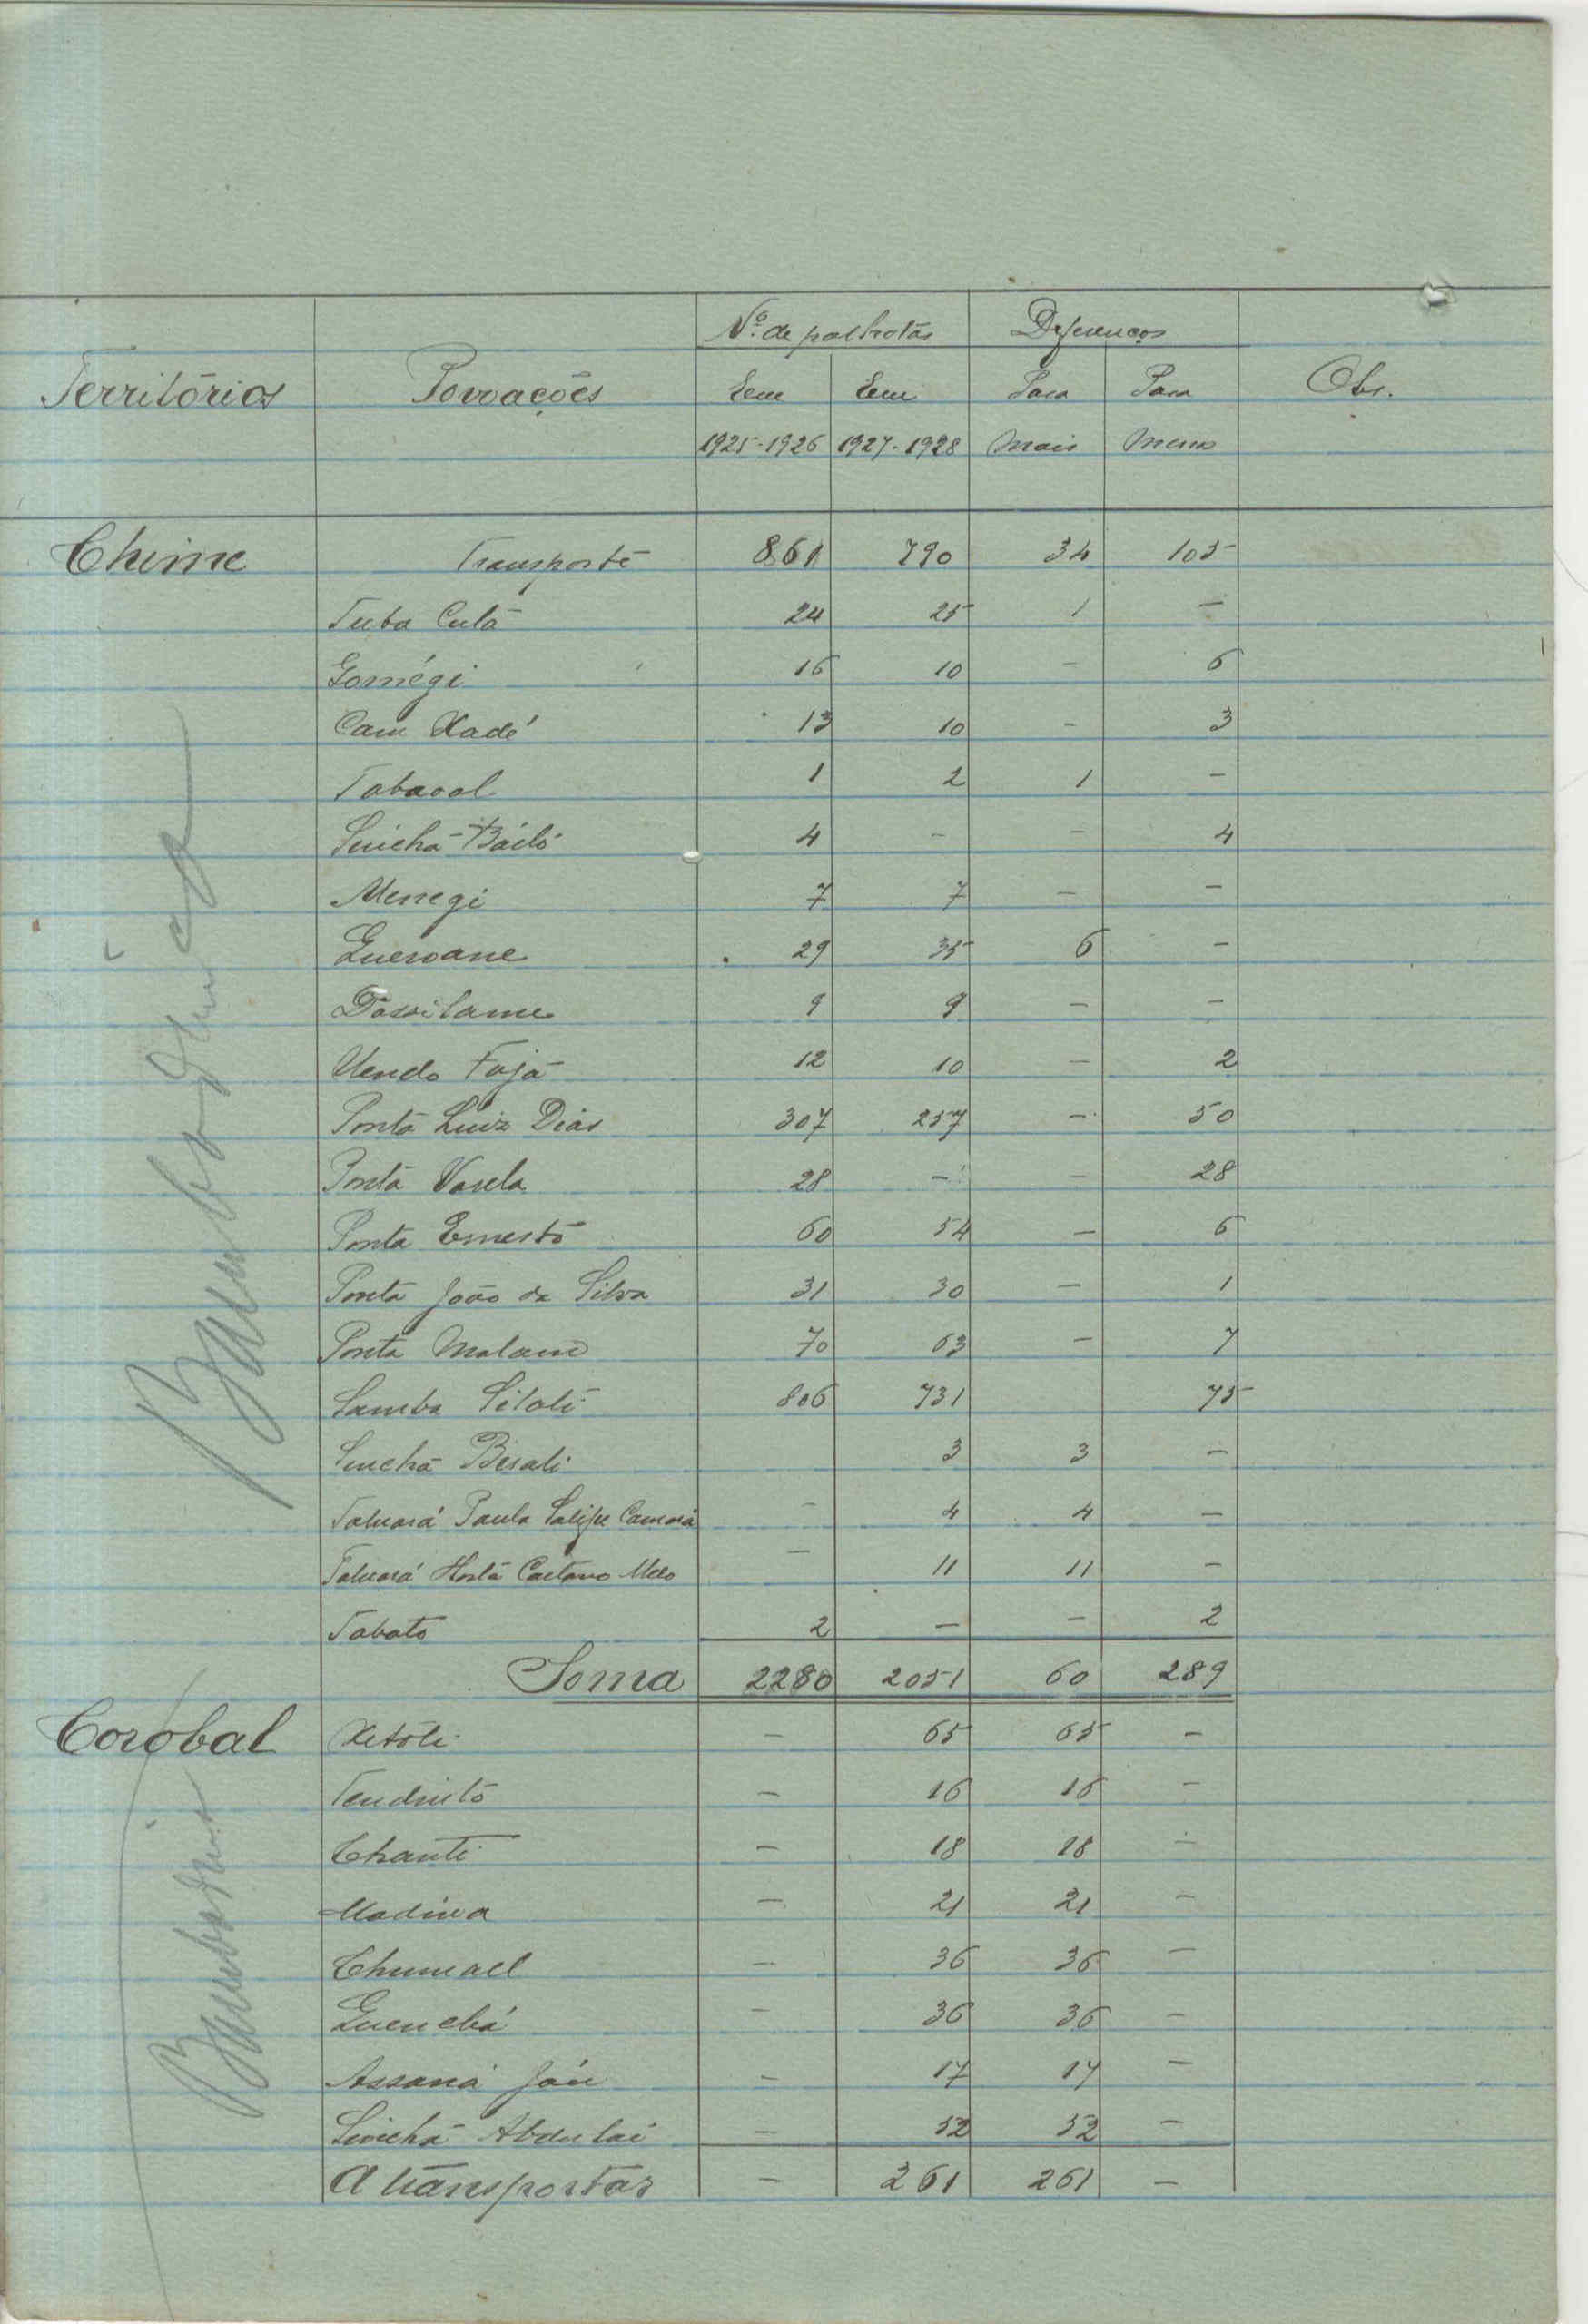 Nº de palhotas Diferenças
Territórios Povoações Em Em Para Para Obs.
1925-1926 1927-1928 Mais Menos
Chime Transporte 861 790 34 105
Tuba Cutá 24 25 1 —
Gomégi 16 10 — 6
Cam Xadé 13 10 — 3
Tabacol 1 2 1 —
Sinchã Báiló 4 — — 4
Menegi 7 7 — —
Gueroane 29 35 6 —
9 9 — —
Uendo Fajá 12 10 — 2
Ponta Luiz Dias 307 257 — 50
Ponta Varela 28 — — 28
Ponta Ernesto 60 54 — 6
Ponta João da Silva 31 30 — 1
Ponta Malam 70 63 — 7
Samba Silati 806 731 75
Sinchã Bisali 3 3 —
Paula Salifu Camará — 4 4 —
Caetano Melo — 11 11 —
Tabato 2 — — 2
Soma 2280 2051 60 289
Corobal Xitóle — 65 65 —
— 16 16 —
Chanti — 18 18 —
Madina — 21 21 —
Chumael — 36 36 —
Guenchá — 36 36 —
Assaná — 17 17 —
Sinchã Abdulai — 52 52 —
A transportar — 261 261 —
Bambadinca